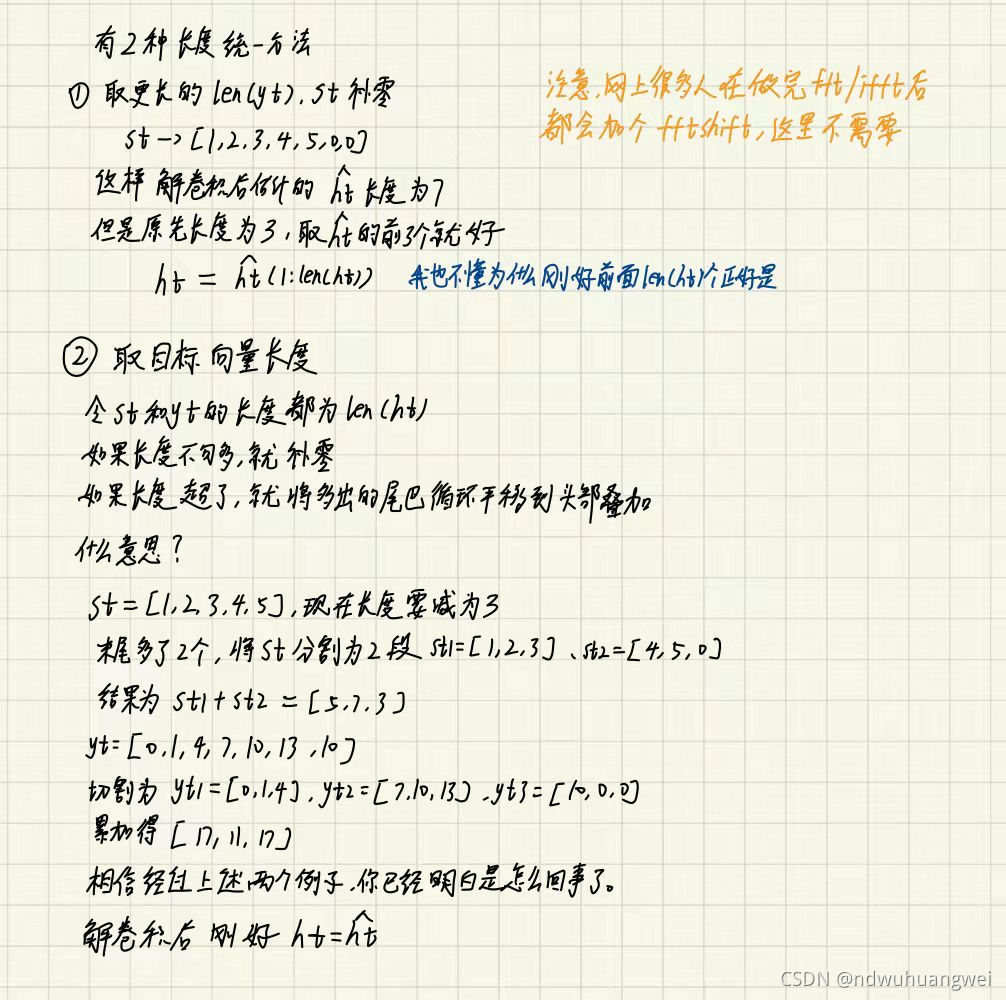 有2种长度统一方法
① 取更长的len(yt), st补零
st→[1,2,3,4,5,0,0]
这样解卷积后估计的 ĥt 长度为7
但是原先长度为3,取ĥt的前3个就好
ht = ĥt(1:len(ht)) 我也不懂为什么刚好前面len(ht)个正好是
注意,网上很多人在做完fft/ifft后
都会加个fftshift,这里不需要
② 取目标向量长度
令st和yt的长度都为len(ht)
如果长度不句多,就补零
如果长度超了,就将多出的尾巴循环平移到头部叠加
什么意思?
st=[1,2,3,4,5],现在长度要减为3
末尾多了2个,将st分割为2段 st1=[1,2,3]、st2=[4,5,0]
结果为 st1+st2 = [5,7,3]
yt=[0,1,4,7,10,13,10]
切割为 yt1=[0,1,4], yt2=[7,10,13], yt3=[10,0,0]
累加得 [17,11,17]
相信经过上述两个例子,你已经明白是怎么回事了。
解卷积后 刚好 ht=ĥt
CSDN @ndwuhuangwei